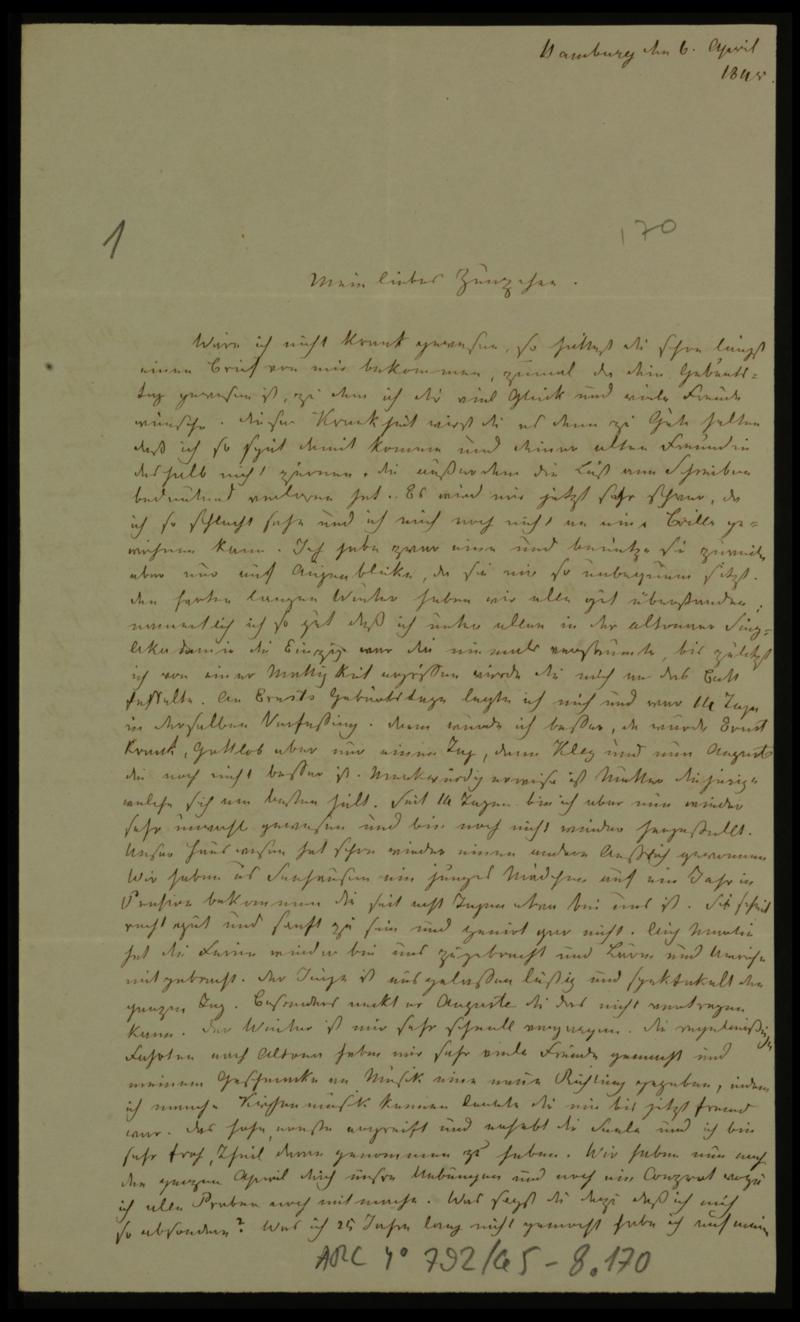 Hamburg den 6. April
1845.
1
170
Mein liebes Zunzchen.
Wäre ich nicht krank gewesen, so hättest du schon längst
einen Brief von mir bekommen, zumal da dein Geburts=
tag gewesen ist, zu dem ich dir viel Glück und viele Freude
wünsche. Dieser Krankheit wirst du es denn zu Gute halten
daß ich so spät damit komme und deiner alten Freundin
deshalb nicht zürnen, die außerdem die Lust am Schreiben
bedeutend verloren hat. Es wird mir jetzt sehr schwer, da
ich so schlecht sehe und ich mich noch nicht an eine Brille ge=
wöhnen kann. Ich habe zwar eine und benutze sie zuweilen
aber nur auf Augenblicke, da sie mir so unbequem sitzt.
Den harten langen Winter haben wir alle gut überstanden,
namentlich ich so gut daß ich unter allen in der altonaer Sing=
akademie die Einzige war die niemals versäumte, bis zuletzt
ich von einer Mattigkeit ergriffen wurde die mich an das Bett
fesselte. An Ernsts Geburtstage legte ich mich und war 14 Tage
in derselben Verfassung. Dann wurde ich besser, da wurde Ernst
krank, Gottlob aber nur einen Tag, dann und nun Auguste
die noch nicht besser ist. Merkwürdigerweise ist Mutter diejenige
welche sich am besten hält. Seit 14 Tagen bin ich aber nun wieder
sehr unwohl gewesen und bin noch nicht wieder hergestellt.
Unser Hauswesen hat schon wieder einen andern Anstrich gewonnen
Wir haben aus Seehausen ein junges Mädchen auf ein Jahr in
Pension bekommen die seit acht Tagen eben bei uns ist. Sie scheint
recht gut und sanft zu sein und genirt gar nicht. Auch
hat die Ferien wieder bei uns zugebracht und Lärm und Unruhe
mitgebracht. Der Junge ist ausgelassen lustig und spektakelt den
ganzen Tag. Besonders neckt er Auguste die das nicht vertragen
kann. Der Winter ist mir sehr schnell vergangen. Die regelmäßigen
Fahrten nach Altona haben mir sehr viele Freude gemacht und
meinem Geschmacke an Musik eine neue Richtung gegeben, indem
ich manche Kirchenmusik kennen lernte die mir bis jetzt fremd
war. Das hohe, ernste ergreift und erhebt die Seele und ich bin
sehr froh, Theil daran genommen zu haben. Wir haben nun noch
den ganzen April durch unsre Uebungen und noch ein Conzert wozu
ich alle Proben noch mitmache. Was sagst du dazu daß ich mich
so absondere? Was ich 25 Jahre lang nicht gemacht habe ich auf meine
ARC 4° 792/G5 - 8.170